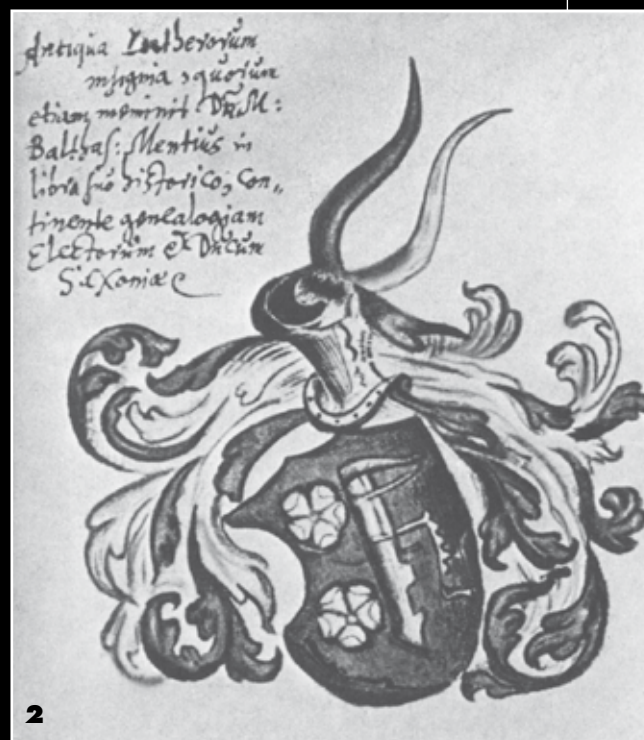 Antiqua Lutherorum
insignia, quorum
etiam meminit Dn̄. M:
Balthas: Mentius in
libro suo historico, con„
tinente genealogiam
Electorum et Ducum
Saxoniae
2